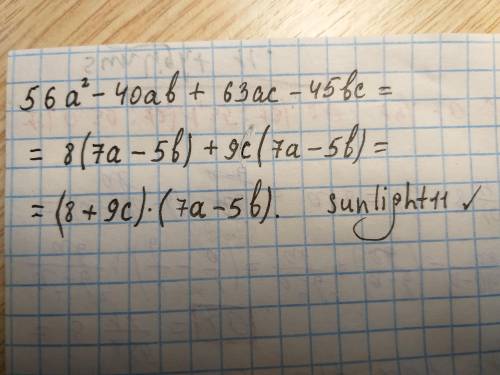 56a² - 40ab + 63ac - 45bc =
= 8(7a - 5b) + 9c(7a - 5b) =
= (8 + 9c)·(7a - 5b). sunlight11 ✓